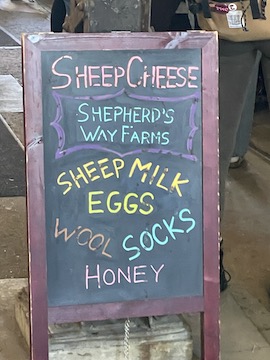 SHEEP CHEESE
SHEPHERD'S
WAY FARMS
SHEEP MILK
EGGS
WOOL SOCKS
HONEY